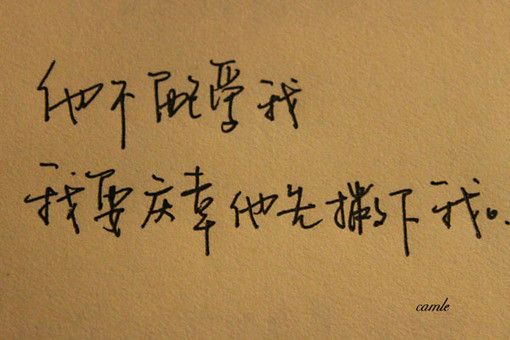 他不屑爱我
我要庆幸他先撇下我。
camle